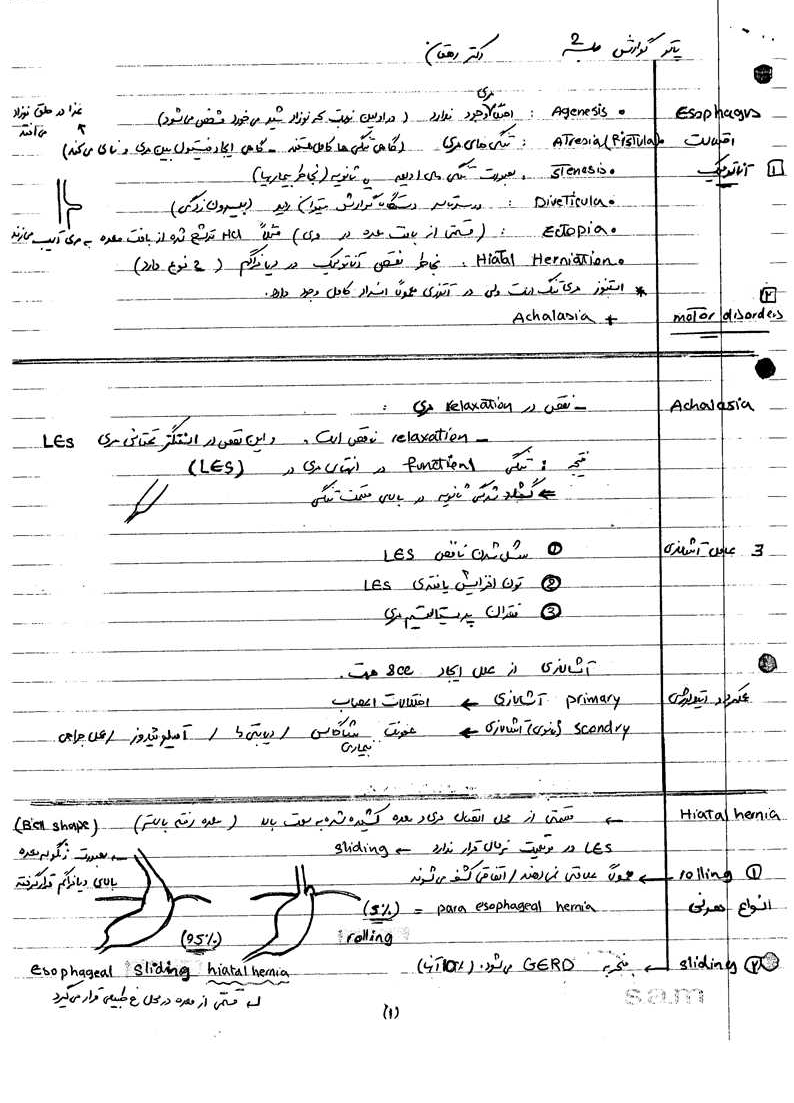 پاتو گوارش جلسه 2 دکتر دهقان
Esophagus
اختلالات
1 آناتومیک
• Agenesis : اصلاً مری وجود ندارد (در اولین نوبت که نوزاد شیر می خورد مشخص می شود)
غذا در حلق نوزاد می افتد
• Atresia (Fistula) : تنگی های مری (گاهی تنگی ها کامل هستند - گاهی ایجاد فیستول بین مری و نای می کند)
• Stenesis : بصورت تنگی های اولیه یا ثانویه (بخاطر بیماریها)
• Diveticula : در سرتاسر دستگاه گوارش میتوان دید (بیرون زدگی)
• Ectopia : (قسمتی از بافت معده در مری) مثلاً HCl ترشح شده از بافت معده به مری آسیب میزند
• Hiatal Herniation : بخاطر نقص آناتومیک در دیافراگم (2 نوع دارد)
* استنوز مری تنگ است ولی در آترزی عموماً انسداد کامل وجود دارد.
2 motor disorders
+ Achalasia
Achalasia
- نقص در relaxation مری :
- relaxation ناقص است. و این نقص در اسفنگتر تحتانی مری LES
نتیجه : تنگی functional در انتهای مری در (LES)
← گشاد شدگی ثانویه در بالای قسمت تنگی
3 عامل آشالازی
① شل شدن ناقص LES
② تون افزایش یافته ی LES
③ فقدان پریستالتیسم مری
آشالازی از علل ایجاد SCC هست.
عملکرد اتیولوژی
primary آشالازی ← اختلالات اعصاب
scondry (ثانوی) آشالازی ← عفونت شاگاس / دیابتی ها / آمیلوئیدوز / عمل جراحی
بیماری
Hiatal hernia
← قسمتی از محل اتصال مری و معده کشیده شده به سمت بالا (معده رفته بالاتر) (Bell shape)
LES در موقعیت نرمال قرار ندارد ← sliding
← بصورت زنگوله معده بالای دیافراگم قرار گرفته
انواع هرنی
① rolling ← عموماً علامتی نمی دهند / اتفاقی کشف می شوند
para esophageal hernia = (5%)
rolling
(95%)
② sliding ← منجر به GERD می شود. (10% آنها)
esophageal sliding hiatal hernia
↳ قسمتی از معده در محل غ طبیعی قرار می گیرد
sam
(1)